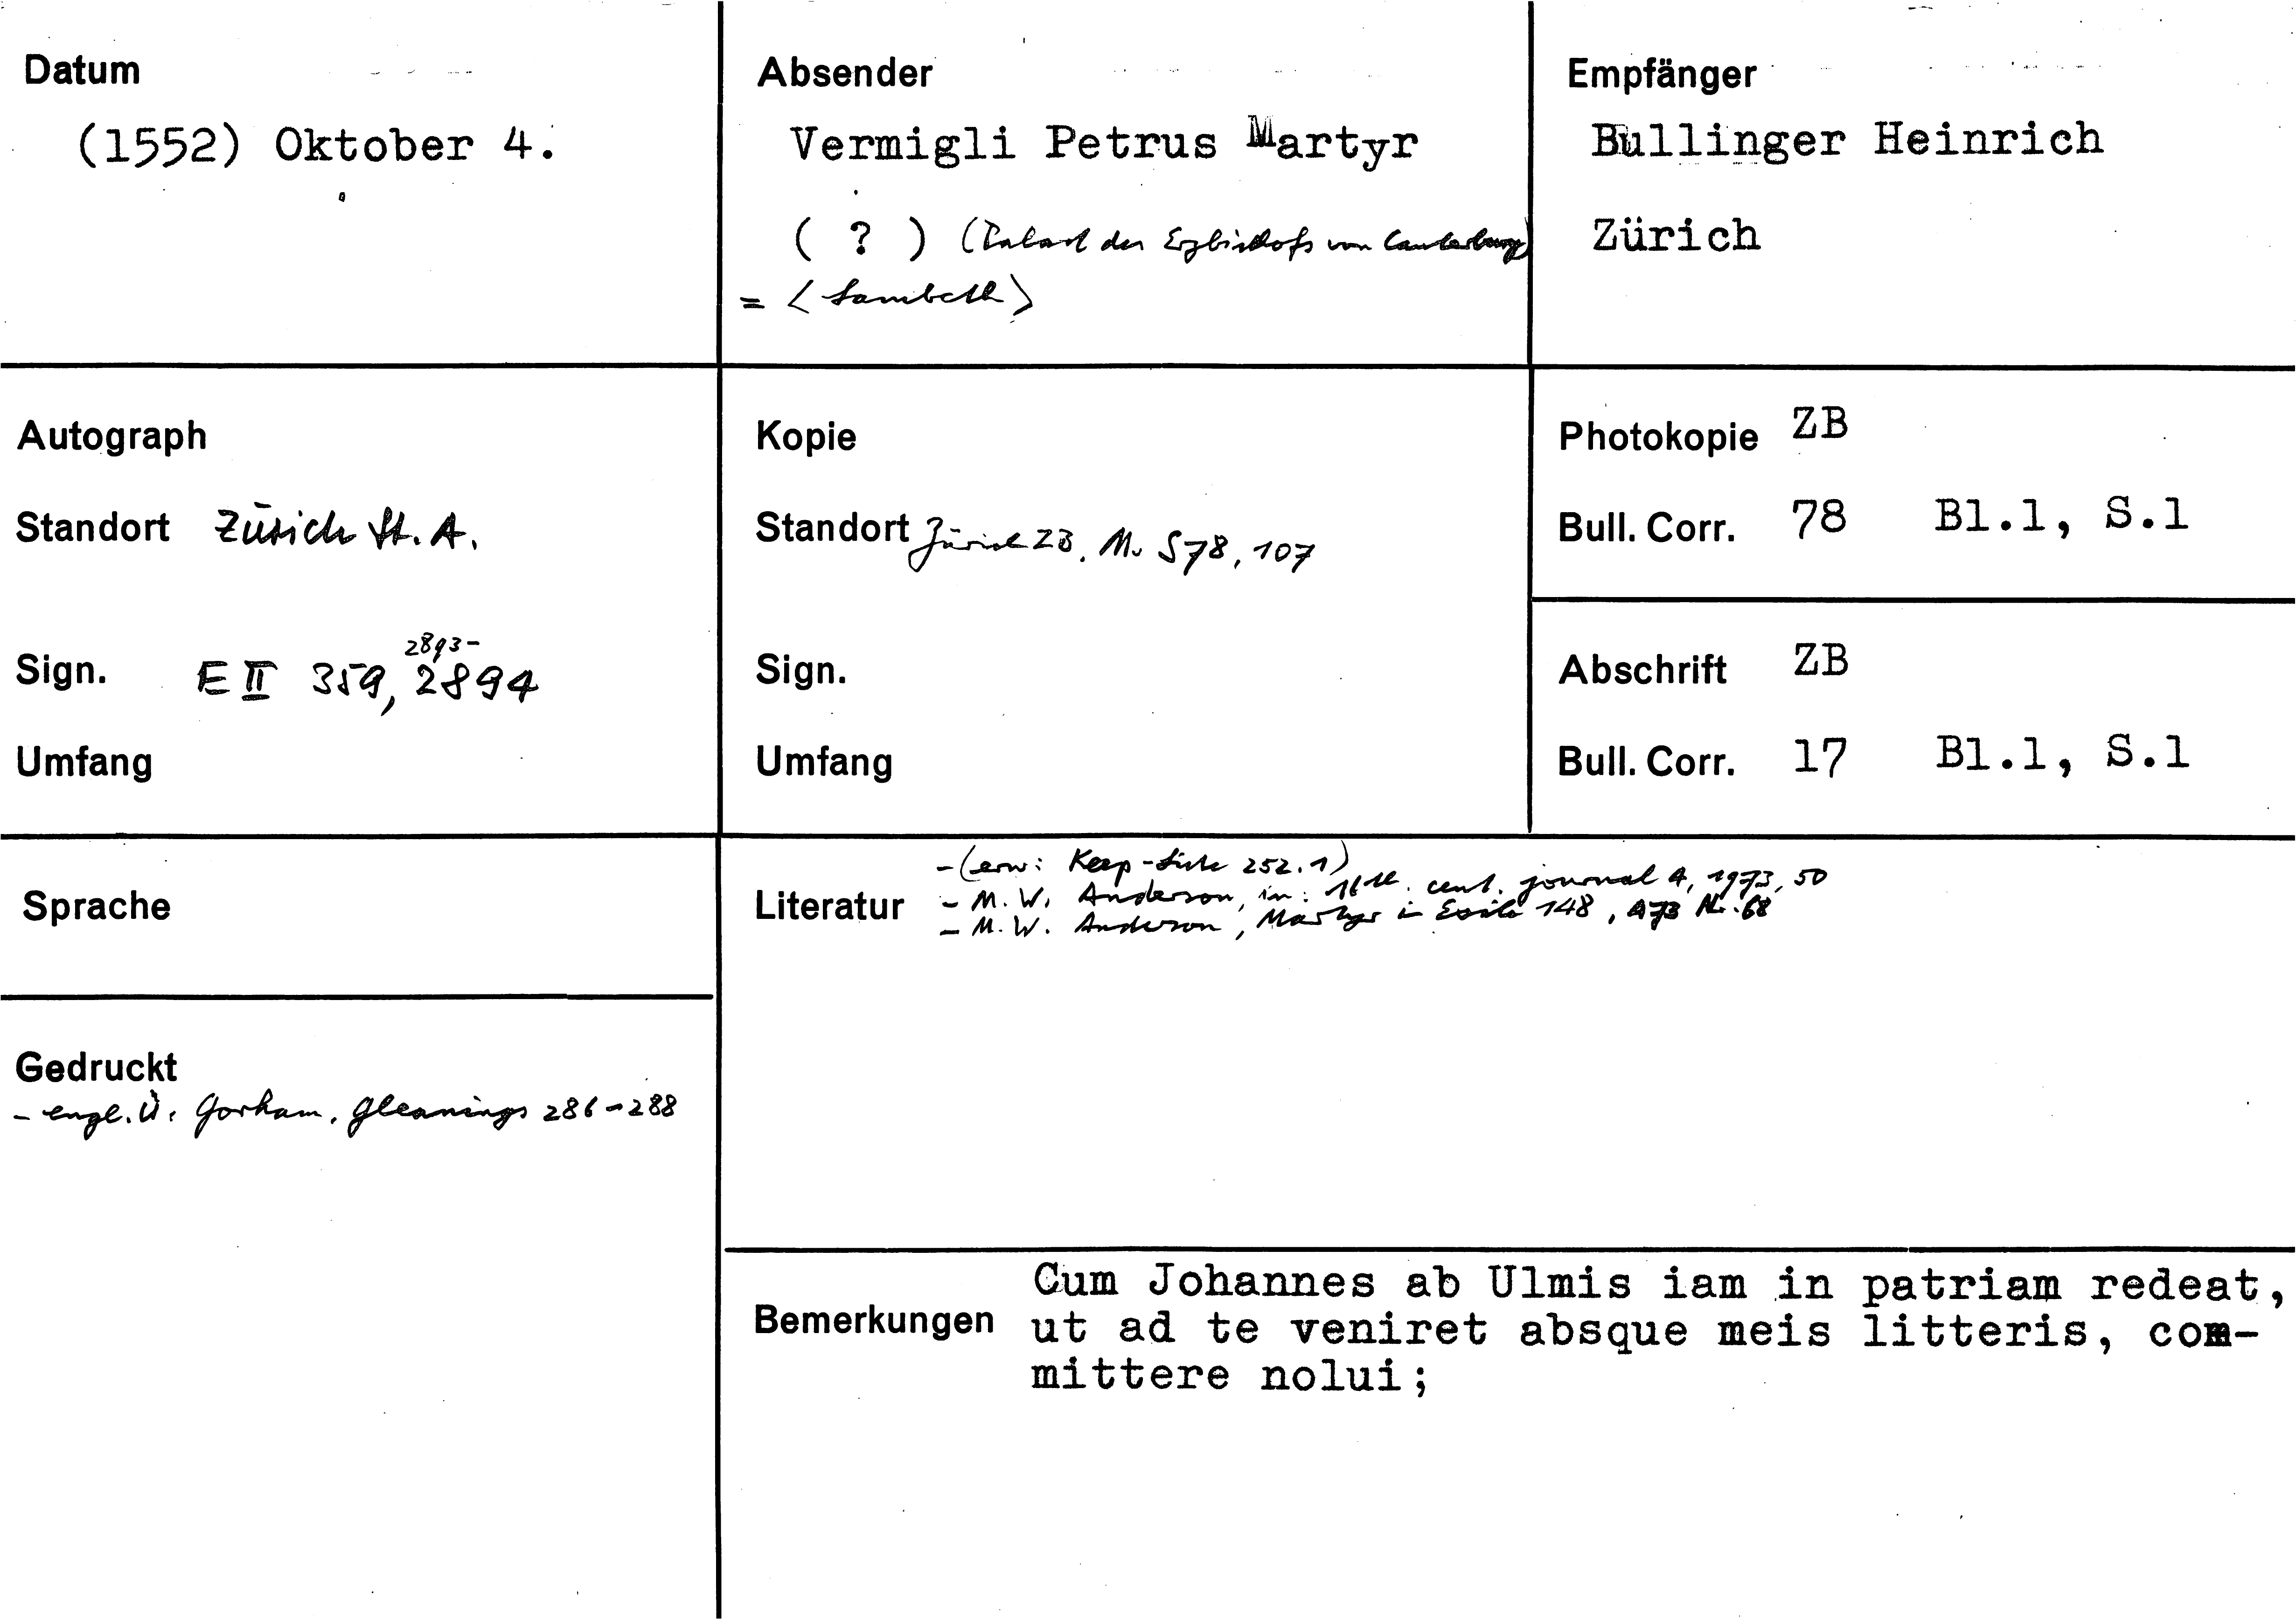 Datum
(1552) Oktober 4.
Absender
Vermigli Petrus Martyr
( ? ) (Palast des Erzbischofs von Canterbury)
= <Lambeth>
Empfänger
Bullinger Heinrich
Zürich
Autograph
Standort Zürich St. A.
Sign. E II 359, 2893-2894
Umfang
Kopie
Standort Zürich ZB, Ms S 78, 107
Sign.
Umfang
Photokopie ZB
Bull. Corr. 78 Bl.1, S.1
Abschrift ZB
Bull. Corr. 17 Bl.1, S.1
Sprache
Gedruckt
- engl. Ü: Gorham, Gleanings 286-288
Literatur
- (erw: Keep-Liste 252.1)
- M. W. Anderson, in: 16th. cent. journal 4, 1973, 50
- M. W. Anderson, Martyr in Exile 148, 473 Nr. 68
Bemerkungen
Cum Johannes ab Ulmis iam in patriam redeat,
ut ad te veniret absque meis litteris, com-
mittere nolui;